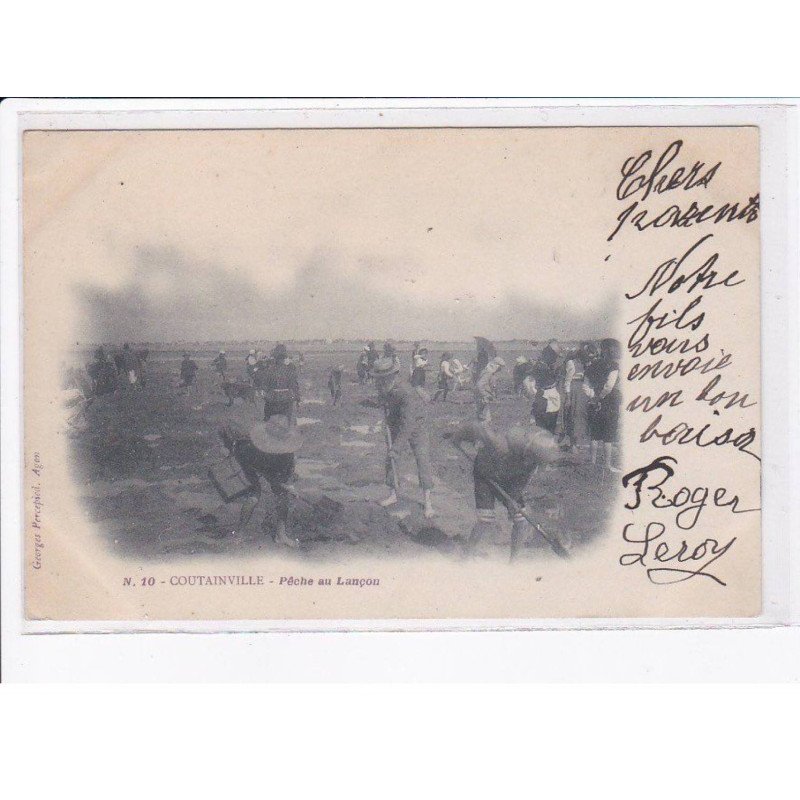 Chers
parents
Notre
fils
vous
envoie
un bon
baiser
Roger
Leroy
Georges Percepied, Agon
N. 10 - COUTAINVILLE - Pêche au Lançon